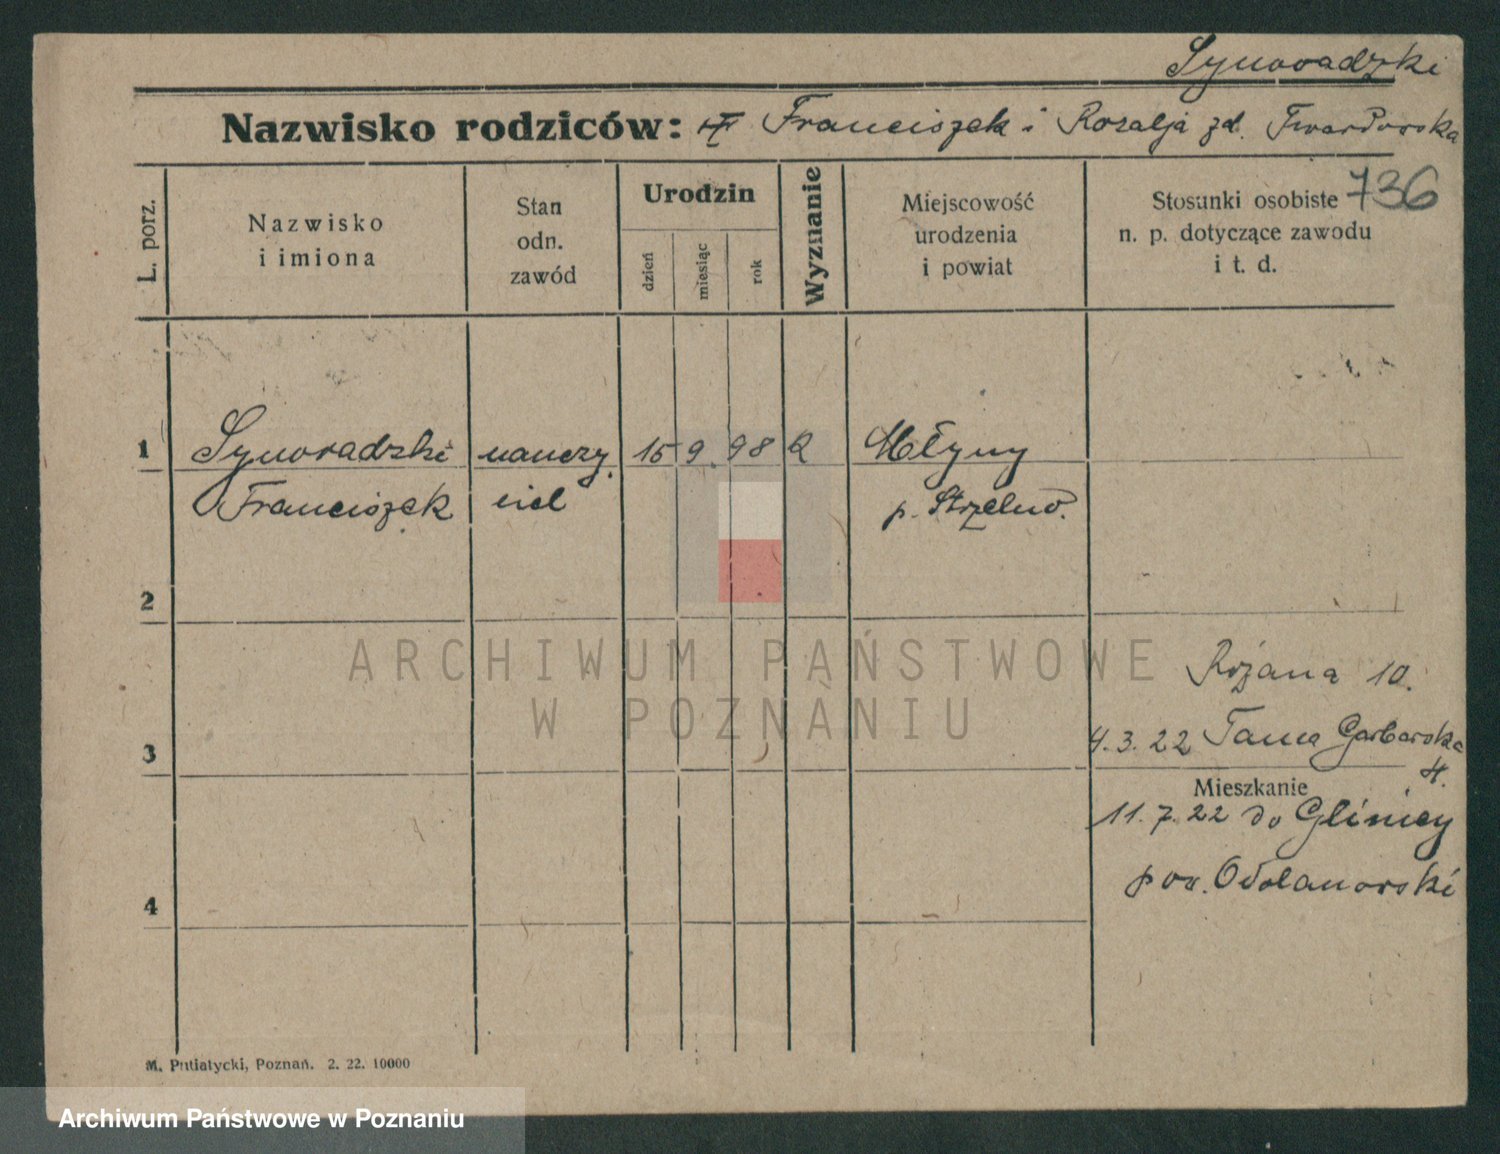 Synoradzki
Nazwisko rodziców: Franciszek i Rozalja zd. Twardowska
736
L. porz.
Nazwisko
i imiona
Stan
odn.
zawód
Urodzin
dzień
miesiąc
rok
Wyznanie
Miejscowość
urodzenia
i powiat
Stosunki osobiste
n. p. dotyczące zawodu
i t. d.
1 Synoradzki nauczy 15 9. 98 Młyny
Franciszek ciel p. Strzelno.
2
ARCHIWUM PAŃSTWOWE
W POZNANIU
Różana 10.
3 4.3.22 Tama Garbarska
4.
Mieszkanie
11.7.22 do Glinicy
pow. Odolanowski
4
M. Putiatycki, Poznań. 2. 22. 10000
Archiwum Państwowe w Poznaniu